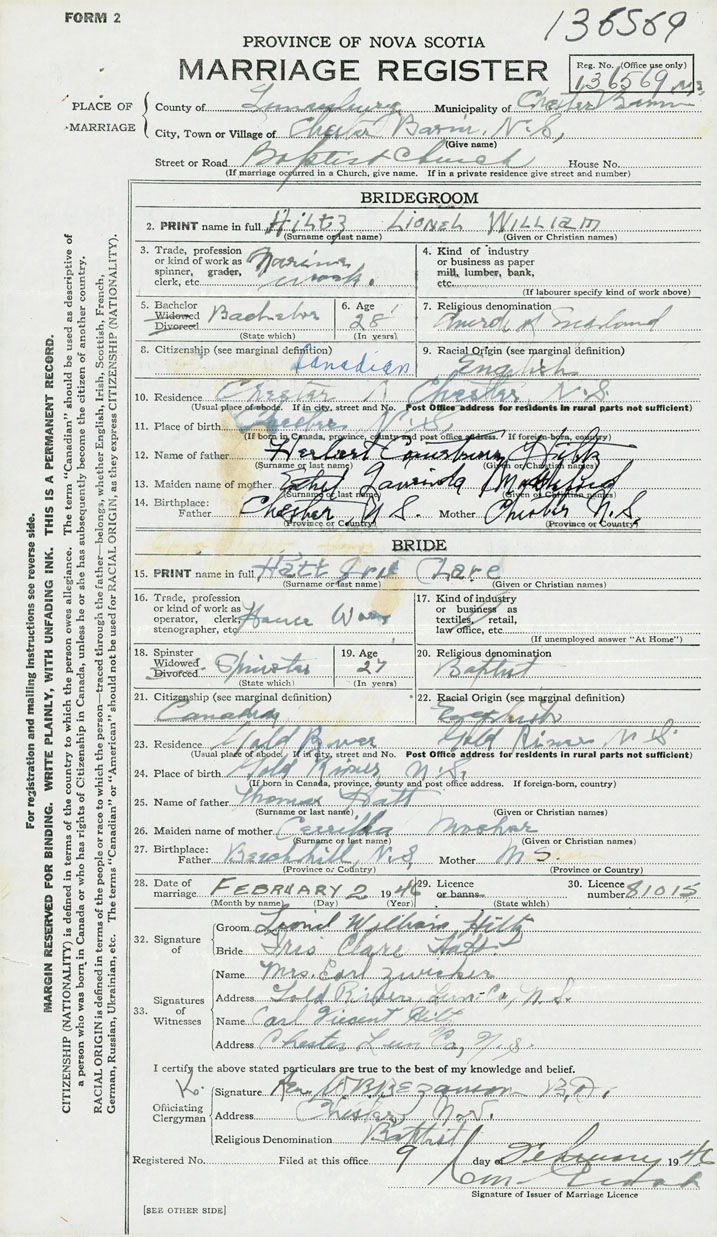 FORM 2
136569
PROVINCE OF NOVA SCOTIA
MARRIAGE REGISTER
Reg. No. (Office use only)
136569
PLACE OF MARRIAGE
County of Lunenburg Municipality of Chester Basin
City, Town or Village of Chester Basin, N.S.,
(Give name)
Street or Road Baptist Church House No.
(If marriage occurred in a Church, give name. If in a private residence give street and number)
BRIDEGROOM
2. PRINT name in full HILTZ LIONEL WILLIAM
(Surname or last name) (Given or Christian names)
3. Trade, profession or kind of work as spinner, grader, clerk, etc. work.
4. Kind of industry or business as paper mill, lumber, bank, etc.
(If labourer specify kind of work above)
5. Bachelor Widowed Divorced Bachelor
(State which)
6. Age 28
(In years)
7. Religious denomination Church of England
8. Citizenship (see marginal definition) Canadian
9. Racial Origin (see marginal definition) English
10. Residence Chester Chester, N.S.
(Usual place of abode. If in city, street and No. Post Office address for residents in rural parts not sufficient)
11. Place of birth Chester N.S.
(If born in Canada, province, county and post office address. If foreign-born, country)
12. Name of father Herbert Hiltz
(Surname or last name) (Given or Christian names)
13. Maiden name of mother Ethel
(Surname or last name) (Given or Christian names)
14. Birthplace: Father Chester N.S. Mother Chester N.S.
(Province or Country) (Province or Country)
BRIDE
15. PRINT name in full Hatt Iris Clare
(Surname or last name) (Given or Christian names)
16. Trade, profession or kind of work as operator, clerk, stenographer, etc. House Work
17. Kind of industry or business as textiles, retail, law office, etc.
(If unemployed answer "At Home")
18. Spinster Widowed Divorced Spinster
(State which)
19. Age 27
(In years)
20. Religious denomination Baptist
21. Citizenship (see marginal definition) Canadian
22. Racial Origin (see marginal definition) English
23. Residence Gold River Gold River N.S.
(Usual place of abode. If in city, street and No. Post Office address for residents in rural parts not sufficient)
24. Place of birth Gold River N.S.
(If born in Canada, province, county and post office address. If foreign-born, country)
25. Name of father Thomas Hatt
(Surname or last name) (Given or Christian names)
26. Maiden name of mother
(Surname or last name) (Given or Christian names)
27. Birthplace: Father Beech hill, N.S. Mother N.S.
(Province or Country) (Province or Country)
28. Date of marriage FEBRUARY 2 1946
(Month by name) (Day) (Year)
29. Licence or banns
(State which)
30. Licence number 81015
32. Signature of
Groom Lionel William Hiltz
Bride Iris Clare Hatt
33. Signatures of Witnesses
Name Mrs. Earl Zwicker
Address Gold River, Lun. Co., N.S.
Name Carl Vincent Hiltz
Address Chester Lun Co, N.S.
I certify the above stated particulars are true to the best of my knowledge and belief.
Officiating Clergyman
Signature Rev. W B Bezanson B.A.
Address Chester N.S.
Religious Denomination Baptist
Registered No. Filed at this office 9 day of February 1946
Signature of Issuer of Marriage Licence
[SEE OTHER SIDE]
For registration and mailing instructions see reverse side.
MARGIN RESERVED FOR BINDING. WRITE PLAINLY, WITH UNFADING INK. THIS IS A PERMANENT RECORD.
CITIZENSHIP (NATIONALITY) is defined in terms of the country to which the person owes allegiance. The term "Canadian" should be used as descriptive of
a person who was born in Canada or who has rights of Citizenship in Canada, unless he or she has subsequently become the citizen of another country.
RACIAL ORIGIN is defined in terms of the people or race to which the person—traced through the father—belongs, whether English, Irish, Scottish, French,
German, Russian, Ukrainian, etc. The terms "Canadian" or "American" should not be used for RACIAL ORIGIN, as they express CITIZENSHIP (NATIONALITY).